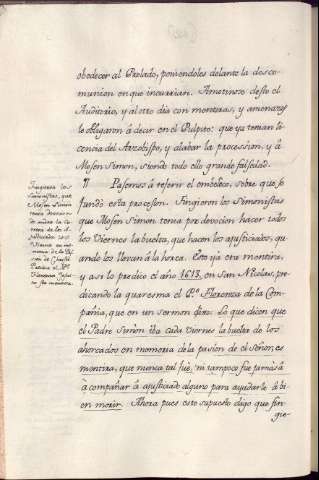 obedecer al Prelado, poniendoles delante la desco-
munion en que incurrian. Amotinose desto el
Auditorio, y al otro dia con mentiras, y amenazas
le obligaron á decir en el Pulpito: que ya tenian li-
cencia del Arzobispo, y alabar la procession, y á
Mosen Simon, siendo todo ello grande falsedad.
¶ Pasemos á referir el embeleco, sobre que se
fundó esta procesion. Fingieron los Simonistas
que Mosen Simon tenia por devocion hacer todos
los Viernes la buelta, que hacen los ajusticiados, qu-
ando los llevan á la horca. Esto era mentira,
y asi lo predico el año 1613, en San Nicolas, pre-
dicando la quaresma el Pe. Florenza de la Com-
pañia, que en un sermon dixo: Lo que dicen que
el Padre Simon iba cada Viernes la buelta de los
ahorcados en memoria de la pasion de el Señor, es
mentira, que nunca tal fué, ni tampoco fue jamás á
acompañar á ajusticiado alguno para ayudarle á bi-
en morir. Ahora pues esto supuesto digo que fin-
gie-
Fingieron los
Simonistas, que
Mosen Simon
tenia devocion
de andar la bu-
elta de los a-
justiciados los
Viernes en me-
moria de la Pa-
sion de Christo